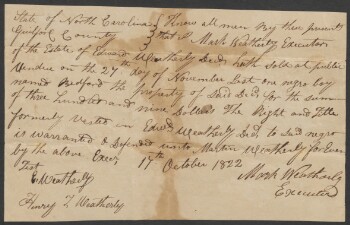 State of North Carolina } Know all men By these presents
Guilford County } that I Mark Weatherly Executor
of the Estate of Edward Weatherly Decd. hath sold at public
Vendue on the 27th day of November Last one negro boy
named Bedford the property of Said Decd. for the summ
of three hundred and nine Dollars The Right and Title
formerly Vested in Edwd. Weatherly Decd. to Said negro
is warranted & Defended unto Martin Weatherly for Ever
by the above Execr. 17th October 1822
Test
E Weatherly
Mark Weatherly
Henry T Weatherly
Executor